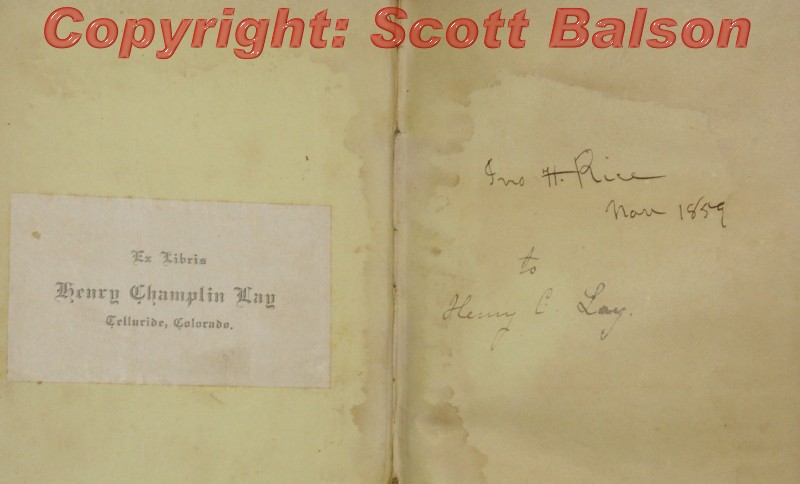 Copyright: Scott Balson
Ex Libris
Henry Champlin Lay
Telluride, Colorado.
Jno H. Rice
Nov 1859
to
Henry C. Lay.